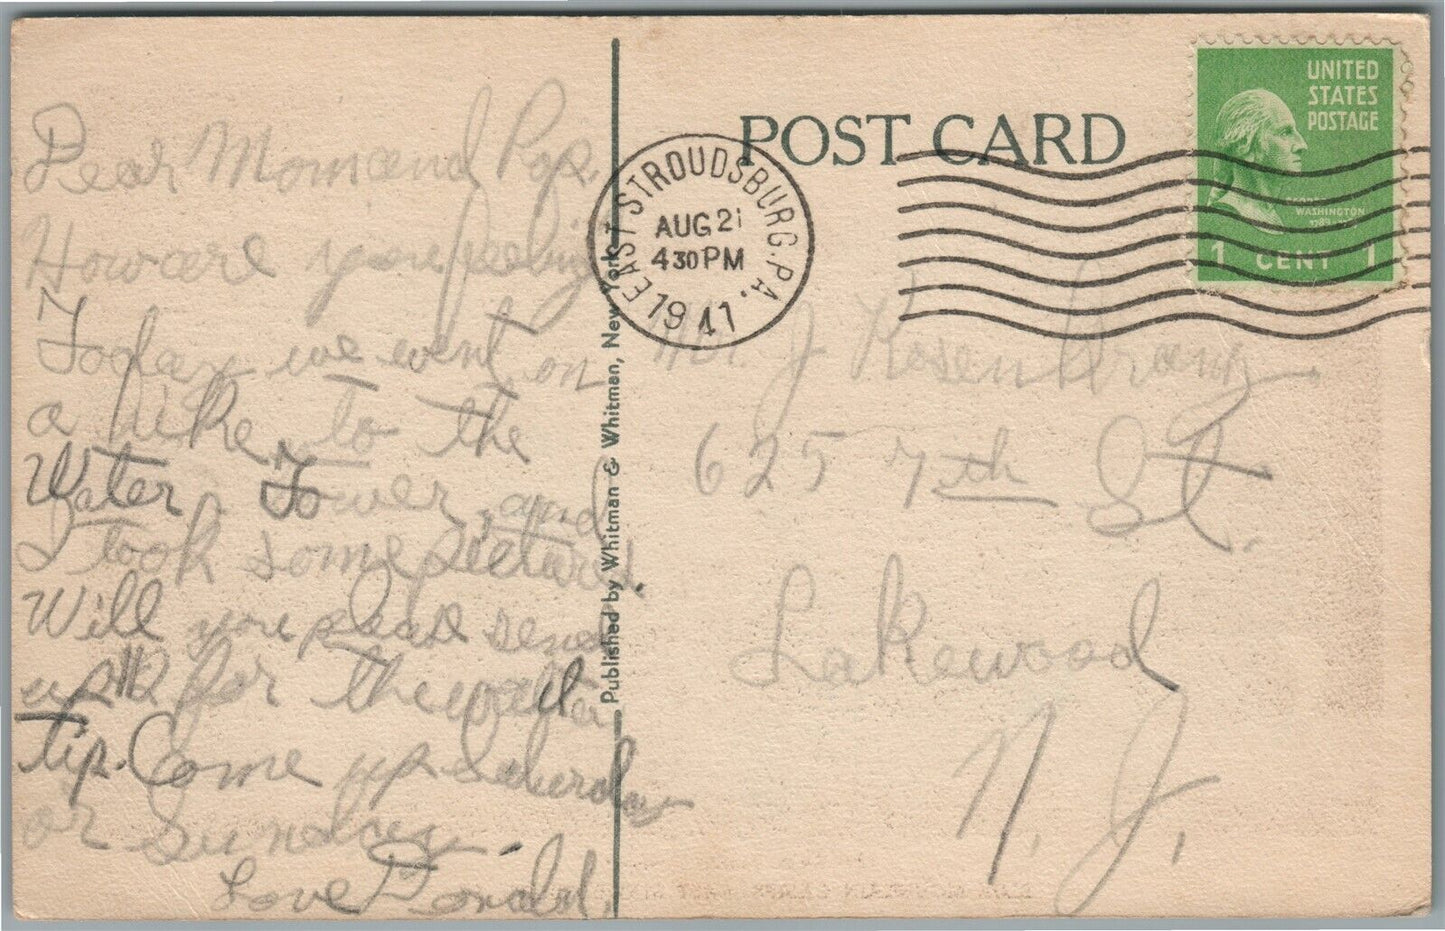 Dear Mom and Pop,
How are you feeling
Today we went on
a hike to the
Water Tower, and
I took some pictures.
Will you please send
up $2 for the waiter
tip. Come up Saturday
or Sunday.
Love Donald.
Published by Whitman & Whitman, New York
POST CARD
EAST STROUDSBURG, PA.
AUG 21
4 30 PM
1941
UNITED
STATES
POSTAGE
GEORGE
WASHINGTON
1 CENT 1
Mr. J Rosenkranz
625 7th St.
Lakewood
N. J.